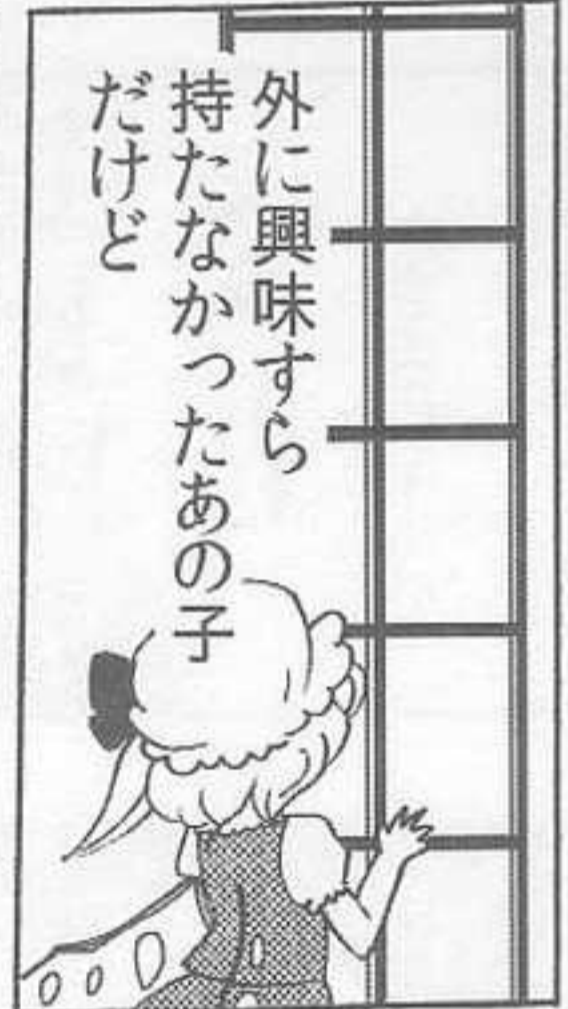 外に興味すら
持たなかったあの子
だけど